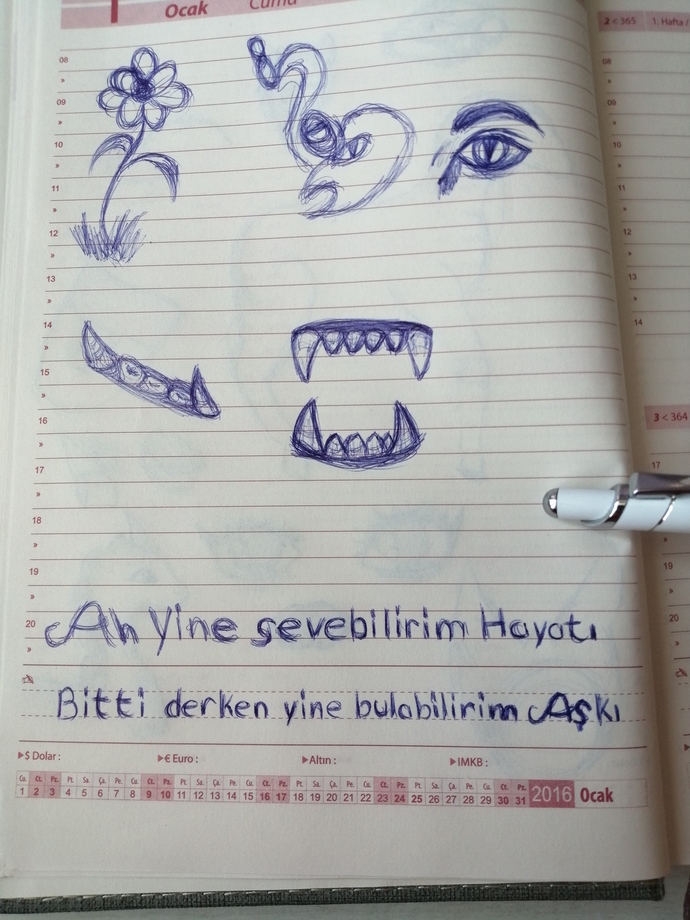 1 Ocak Cuma
2 < 365 1. Hafta /
08
»
09
»
10
»
11
»
12
»
13
»
14
»
15
»
16
»
17
»
18
»
19
»
20
»
08
»
09
»
10
»
11
»
12
»
13
»
14
3 < 364
17
»
19
»
20
»
Ah Yine sevebilirim Hayatı
Bitti derken yine bulabilirim Aşkı
$ Dolar : € Euro : Altın : IMKB :
Cu. Ct. Pz. Pt. Sa. Ça. Pe. Cu. Ct. Pz. Pt. Sa. Ça. Pe. Cu. Ct. Pz. Pt. Sa. Ça. Pe. Cu. Ct. Pz. Pt. Sa. Ça. Pe. Cu. Ct. Pz.
1 2 3 4 5 6 7 8 9 10 11 12 13 14 15 16 17 18 19 20 21 22 23 24 25 26 27 28 29 30 31 2016 Ocak